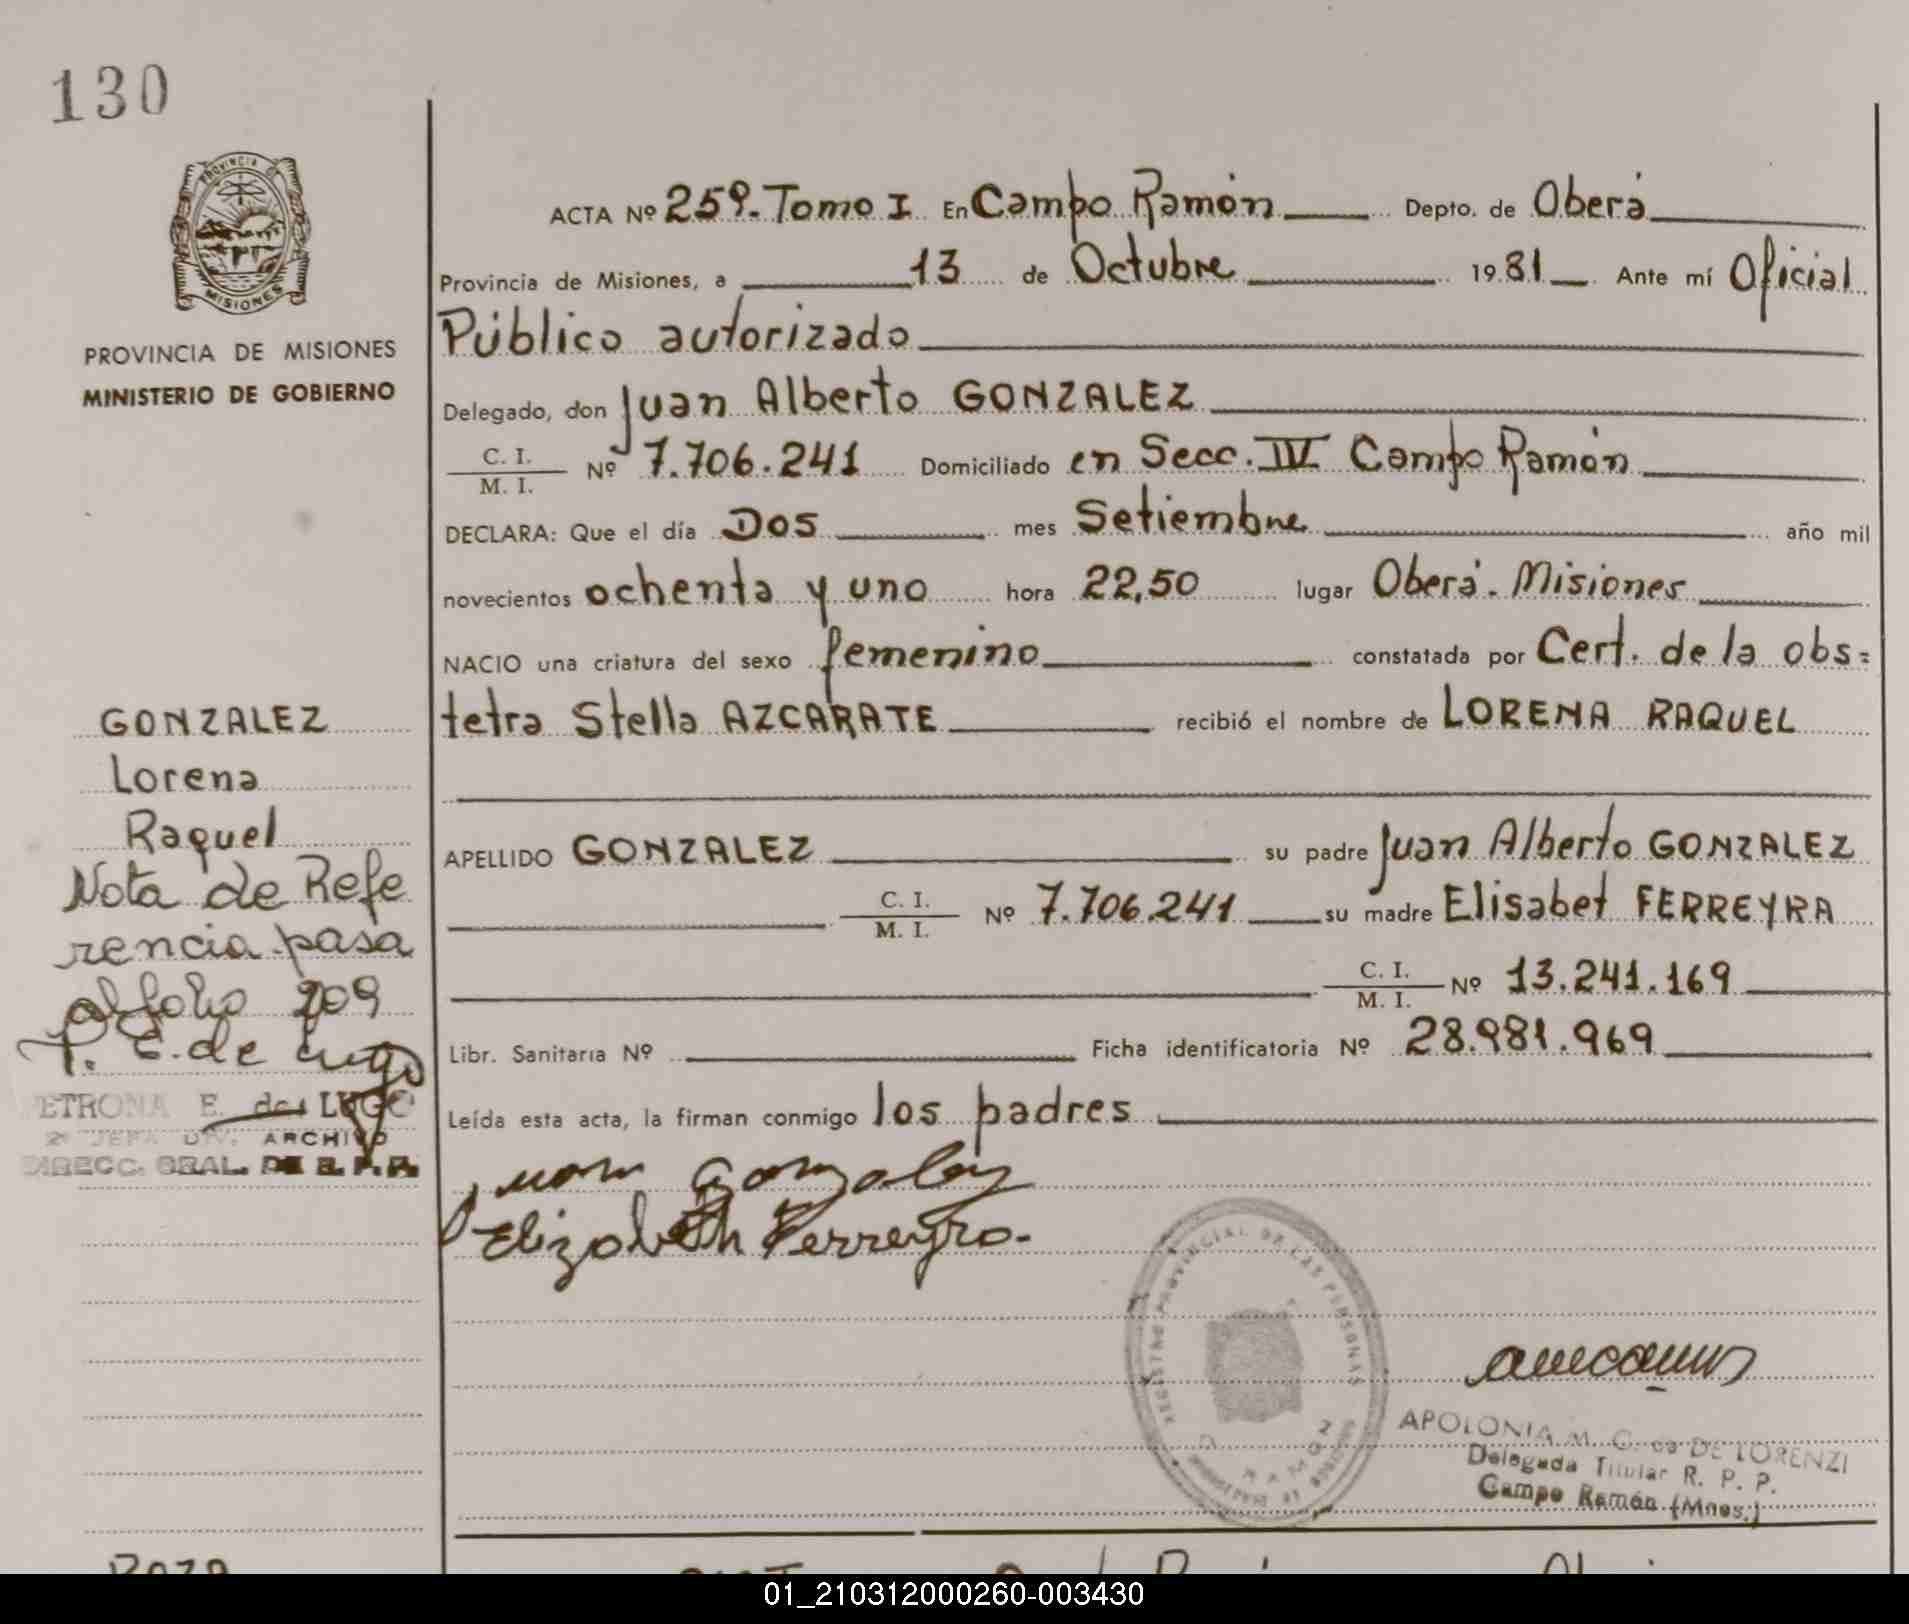 130
PROVINCIA DE
MISIONES
PROVINCIA DE MISIONES
MINISTERIO DE GOBIERNO
ACTA Nº 259. Tomo I En Campo Ramón Depto. de Oberá
Provincia de Misiones, a 13 de Octubre 1981 Ante mí Oficial
Público autorizado
Delegado, don Juan Alberto GONZALEZ
C. I.
M. I. Nº 7.706.241 Domiciliado en Secc. IV Campo Ramón
DECLARA: Que el día Dos mes Setiembre año mil
novecientos ochenta y uno hora 22,50 lugar Oberá. Misiones
NACIO una criatura del sexo femenino constatada por Cert. de la obs=
tetra Stella AZCARATE recibió el nombre de LORENA RAQUEL
APELLIDO GONZALEZ su padre Juan Alberto GONZALEZ
C. I.
M. I. Nº 7.706.241 su madre Elisabet FERREYRA
C. I.
M. I. Nº 13.241.169
Libr. Sanitaria Nº Ficha identificatoria Nº 28.981.969
Leída esta acta, la firman conmigo los padres
Juan Gonzalez
Elizabeth Ferreyra.
GONZALEZ
Lorena
Raquel
Nota de Refe
rencia pasa
al folio 209
P. E. de Lugo
PETRONA E. de LUGO
2º JEFA DIV. ARCHIVO
DIRECC. GRAL. DE R. P. P.
REGISTRO PROVINCIAL DE LAS PERSONAS
RAMON
APOLONIA M. C. de DE LORENZI
Delegada Titular R. P. P.
Campo Ramón (Mnes.)
01_210312000260-003430